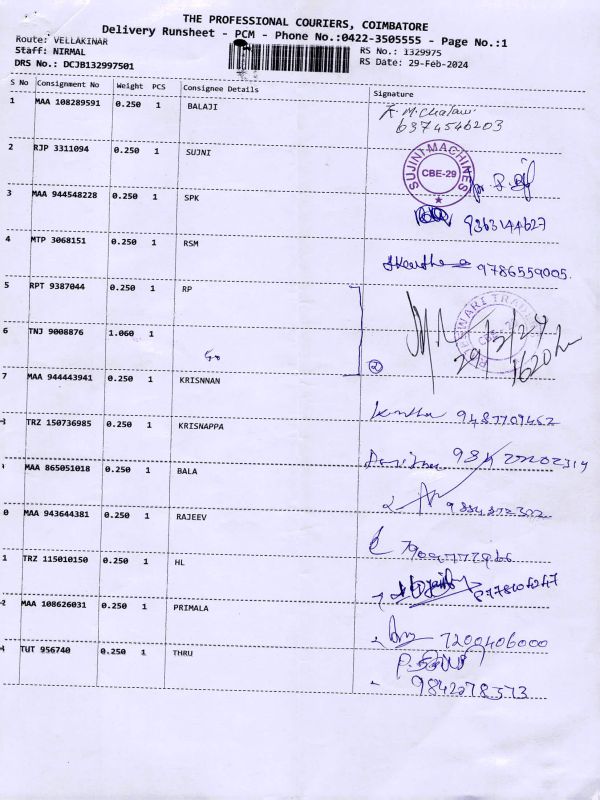 THE PROFESSIONAL COURIERS, COIMBATORE
Delivery Runsheet - PCM - Phone No.:0422-3505555 - Page No.:1
Route: VELLAKINAR
Staff: NIRMAL
RS No.: 1329975
DRS No.: DCJB132997501
RS Date: 29-Feb-2024
S No Consignment No Weight PCS Consignee Details Signature
1 MAA 108289591 0.250 1 BALAJI
6374546203
2 RJP 3311094 0.250 1 SUJNI
SUJINI MACHINES CBE-29
3 MAA 944548228 0.250 1 SPK 9363144627
4 MTP 3068151 0.250 1 RSM 9786559005
5 RPT 9387044 0.250 1 RP
6 TNJ 9008876 1.060 1
29/2/24
2
7 MAA 944443941 0.250 1 KRISNNAN
TRZ 150736985 0.250 1 KRISNAPPA
MAA 865051018 0.250 1 BALA
0 MAA 943644381 0.250 1 RAJEEV
1 TRZ 115010150 0.250 1 HL
2 MAA 108626031 0.250 1 PRIMALA 7200406000
TUT 956740 0.250 1 THRU
9842278573